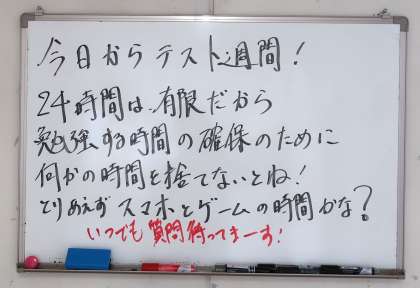 今日からテスト週間!
24時間は有限だから
勉強する時間の確保のために
何かの時間を捨てないとね!
とりあえずスマホとゲームの時間かな?
いつでも質問待ってまーす!